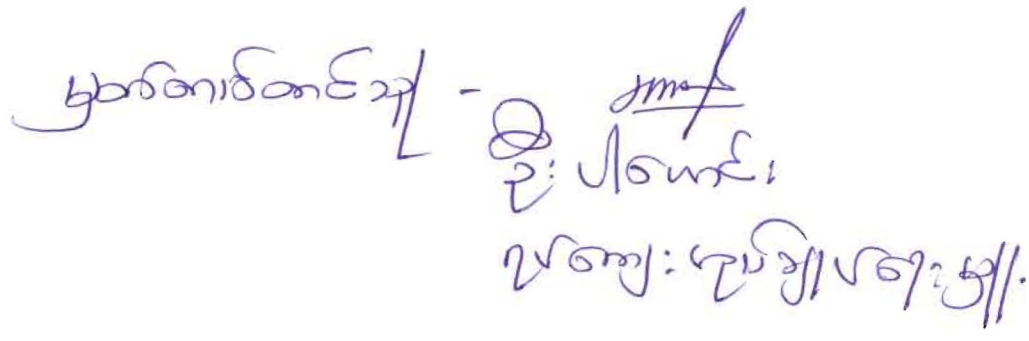 မှတ်တမ်းတင်သူ -
ဦးပါမောင်း
ကျေးအုပ်ချုပ်ရေးမှူး